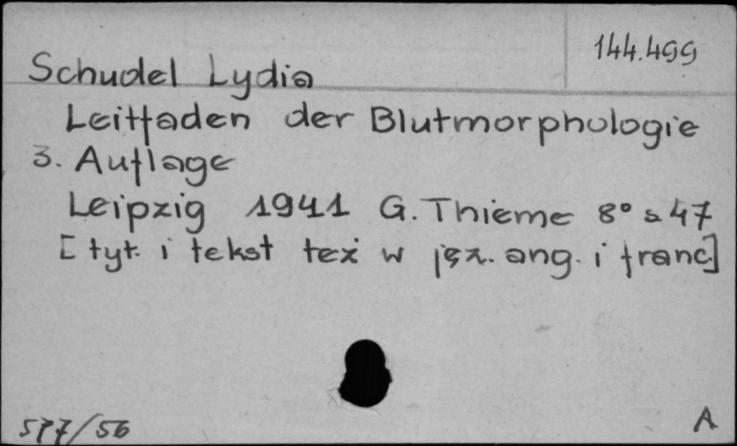 144.499
Schudel Lydia
Leitfaden der Blutmorphologie
3. Auflage
Leipzig 1941 G. Thieme 8° s 47
[tyt. i tekst też w jęz. ang. i franc]
577/56 A